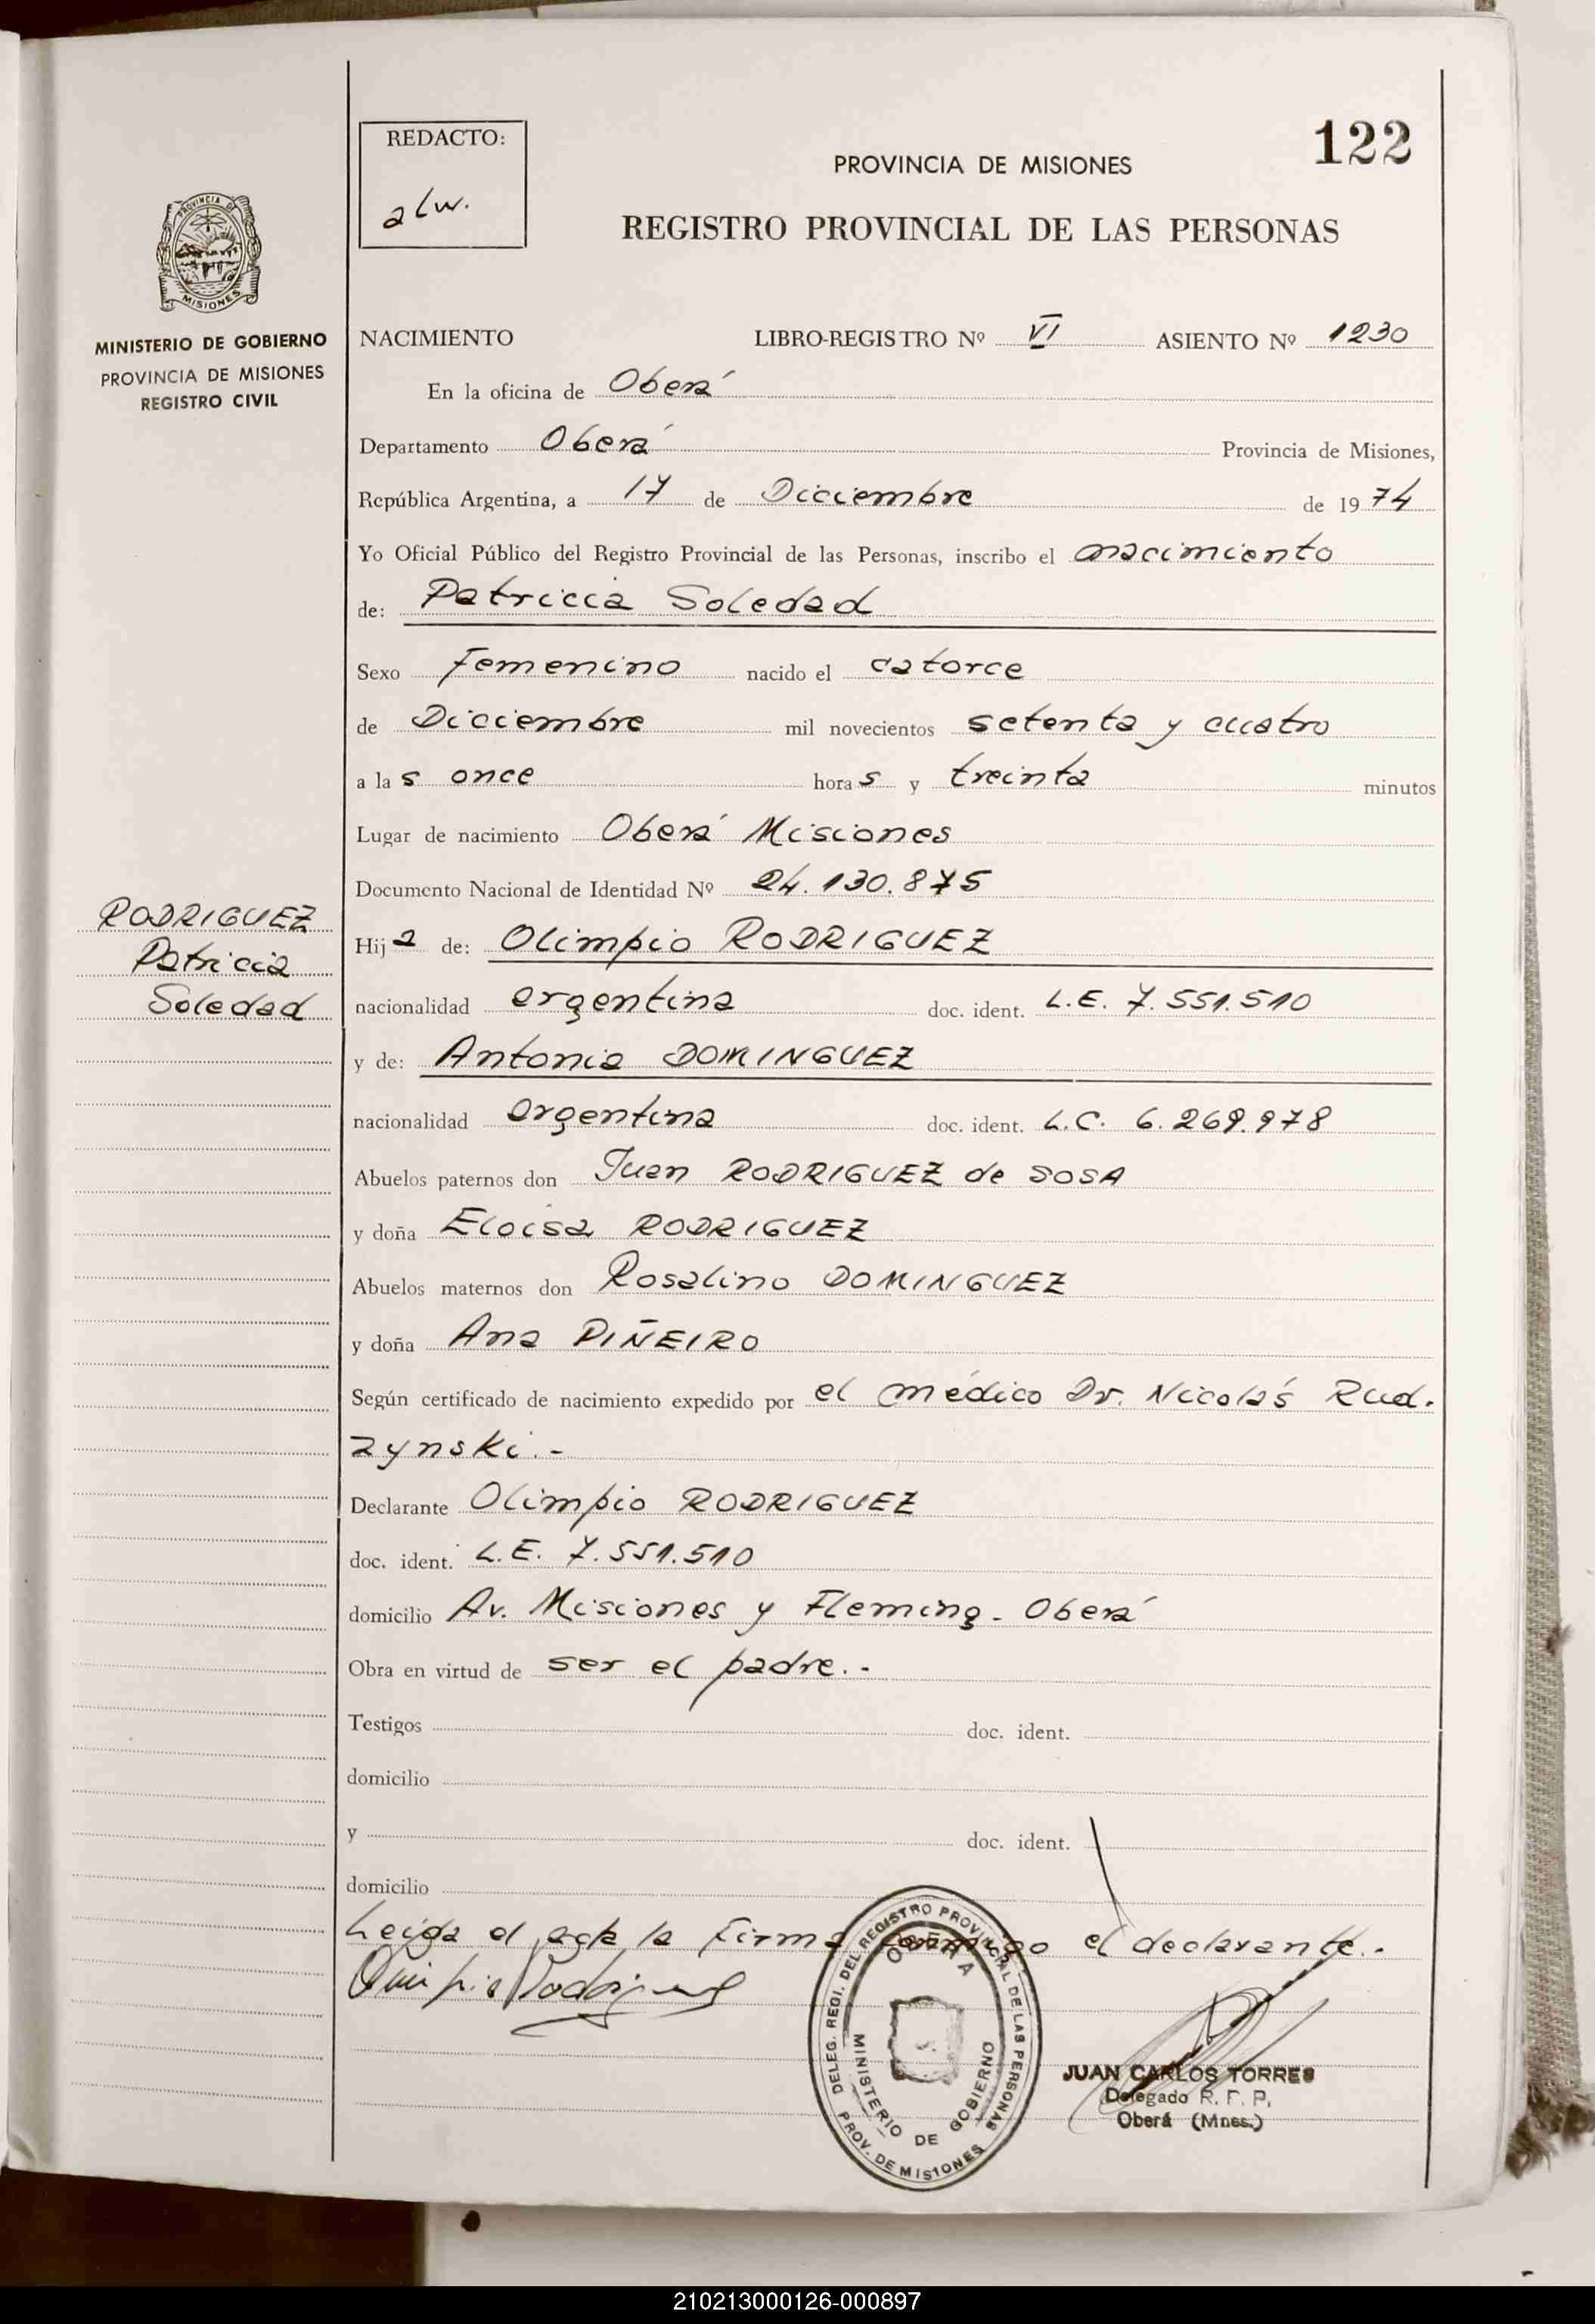 122
REDACTO:
alw.
PROVINCIA DE MISIONES
REGISTRO PROVINCIAL DE LAS PERSONAS
PROVINCIA DE
MISIONES
MINISTERIO DE GOBIERNO
PROVINCIA DE MISIONES
REGISTRO CIVIL
NACIMIENTO LIBRO-REGISTRO Nº VI ASIENTO Nº 1230
En la oficina de Oberá
Departamento Oberá Provincia de Misiones,
República Argentina, a 17 de Diciembre de 1974
Yo Oficial Público del Registro Provincial de las Personas, inscribo el nacimiento
de: Patricia Soledad
Sexo Femenino nacido el catorce
de Diciembre mil novecientos setenta y cuatro
a las once horas y treinta minutos
Lugar de nacimiento Oberá Misiones
Documento Nacional de Identidad Nº 24.130.875
RODRIGUEZ
Patricia
Soledad
Hija de: Olimpio RODRIGUEZ
nacionalidad argentina doc. ident. L.E. 7.551.510
y de: Antonia DOMINGUEZ
nacionalidad argentina doc. ident. L.C. 6.269.978
Abuelos paternos don Juan RODRIGUEZ de SOSA
y doña Eloisa RODRIGUEZ
Abuelos maternos don Rosalino DOMINGUEZ
y doña Ana PIÑEIRO
Según certificado de nacimiento expedido por el médico Dr. Nicolás Rud-
zynski.-
Declarante Olimpio RODRIGUEZ
doc. ident. L.E. 7.551.510
domicilio Av. Misiones y Fleming - Oberá
Obra en virtud de ser el padre.-
Testigos doc. ident.
domicilio
y doc. ident.
domicilio
Leída el acta la firma conmigo el declarante.-
Olimpio Rodriguez
DELEG. REGI. DEL REGISTRO PROVINCIAL DE LAS PERSONAS
OBERA
MINISTERIO DE GOBIERNO
PROV. DE MISIONES
JUAN CARLOS TORRES
Delegado R. P. P.
Oberá (Mnes.)
210213000126-000897